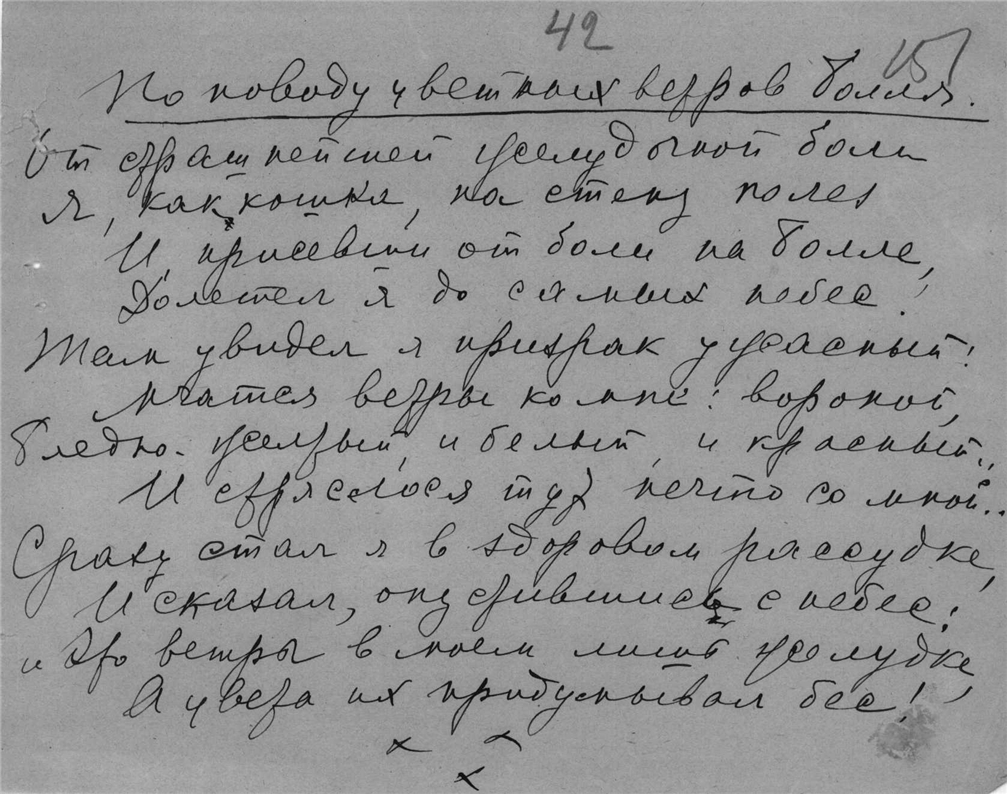 42 151
По поводу цветных ветров Толля.
От страшнейшей желудочной боли
Я, как кошка, на стену полез
И, присевши от боли на Толле,
Долетел я до самых небес!
Там увидел я призрак ужасный:
Мчатся ветры ко мне: вороной,
Бледно-желтый, и белый, и красный..
И стряслося тут нечто со мной..
Сразу стал я в здоровом рассудке,
И сказал, опустившись с небес:
"Это ветры в моем лишь желудке,
А цвета их придумывал бес!"
х х
х